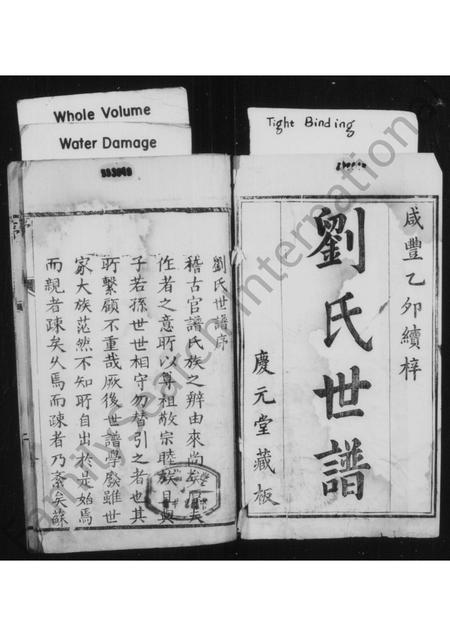 Whole Volume
Water Damage
Tight Binding
咸豐乙卯續梓
劉氏世譜
慶元堂藏板
劉氏世譜序
稽古官譜氏族之辯由來尚矣
作者之意所以尊祖敬宗睦族
子若孫世世相守勿替引之者也其
所繫顧不重哉厥後世譜學廢雖世
家大族茫然不知所自出於是始焉
而親者疎矣久焉而疎者乃紊矣蘇
FamilySearch International